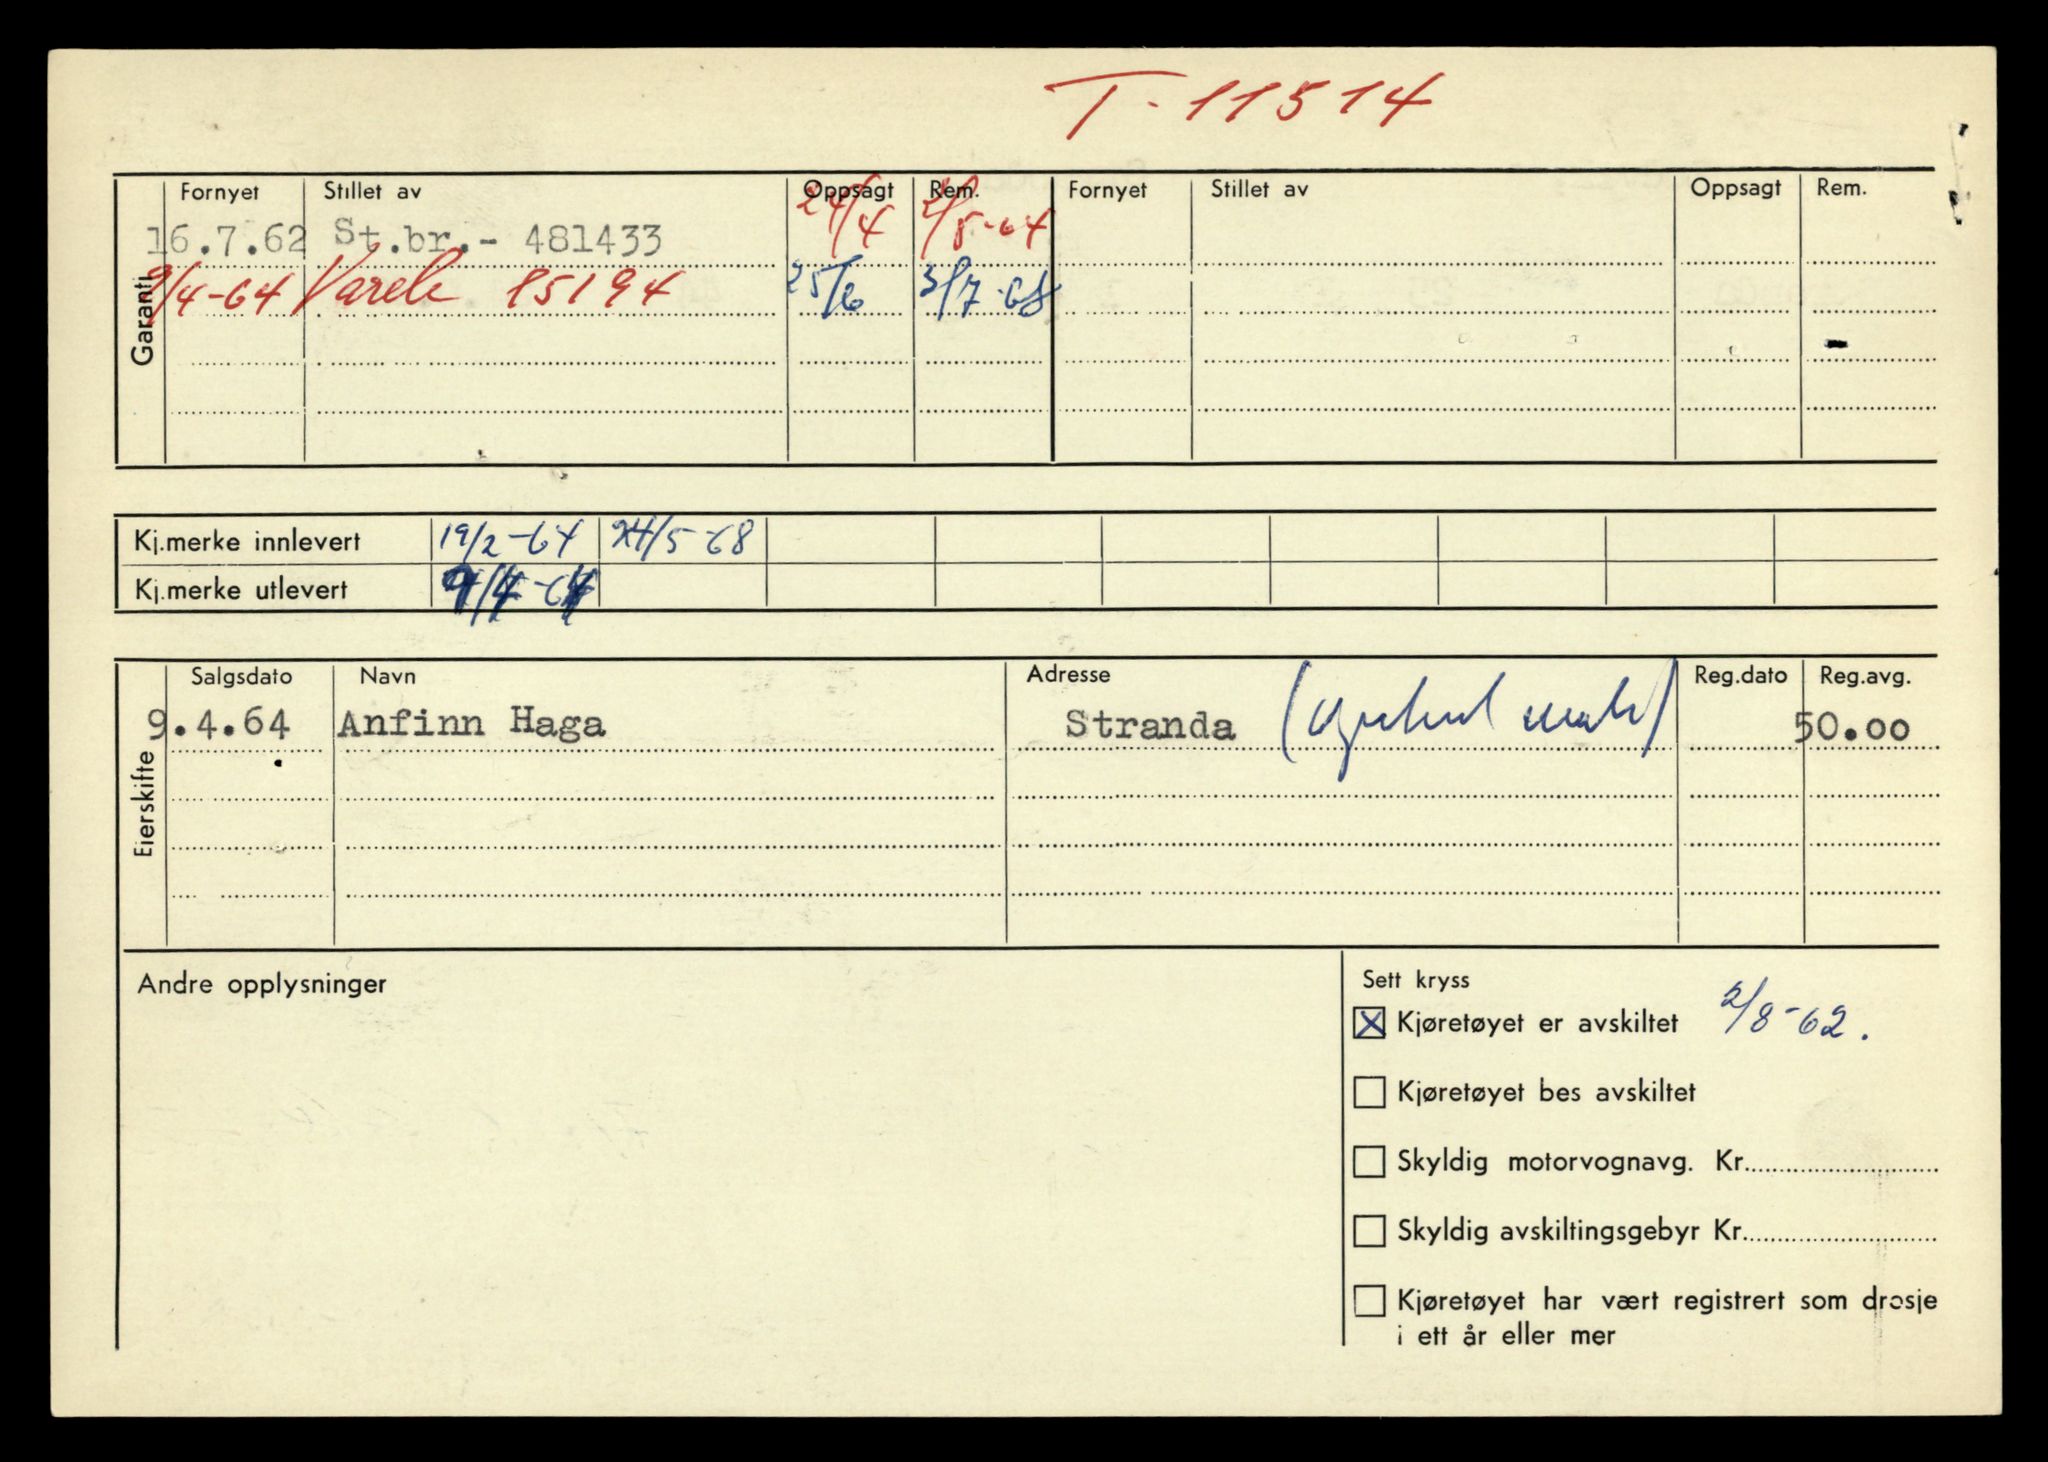 T-11514
Garanti
Fornyet Stillet av Oppsagt Rem. Fornyet Stillet av Oppsagt Rem.
16.7.62 St.br.- 481433 24/4 2/5-64
9/4-64 85194 25/6 3/7-68
Kj.merke innlevert 19/2-64 24/5-68
Kj.merke utlevert 9/4-64
Eierskifte
Salgsdato Navn Adresse Reg.dato Reg.avg.
9.4.64 Anfinn Haga Stranda 50.00
Andre opplysninger
Sett kryss
Kjøretøyet er avskiltet 2/8-62.
Kjøretøyet bes avskiltet
Skyldig motorvognavg. Kr.
Skyldig avskiltingsgebyr Kr.
Kjøretøyet har vært registrert som drosje
i ett år eller mer